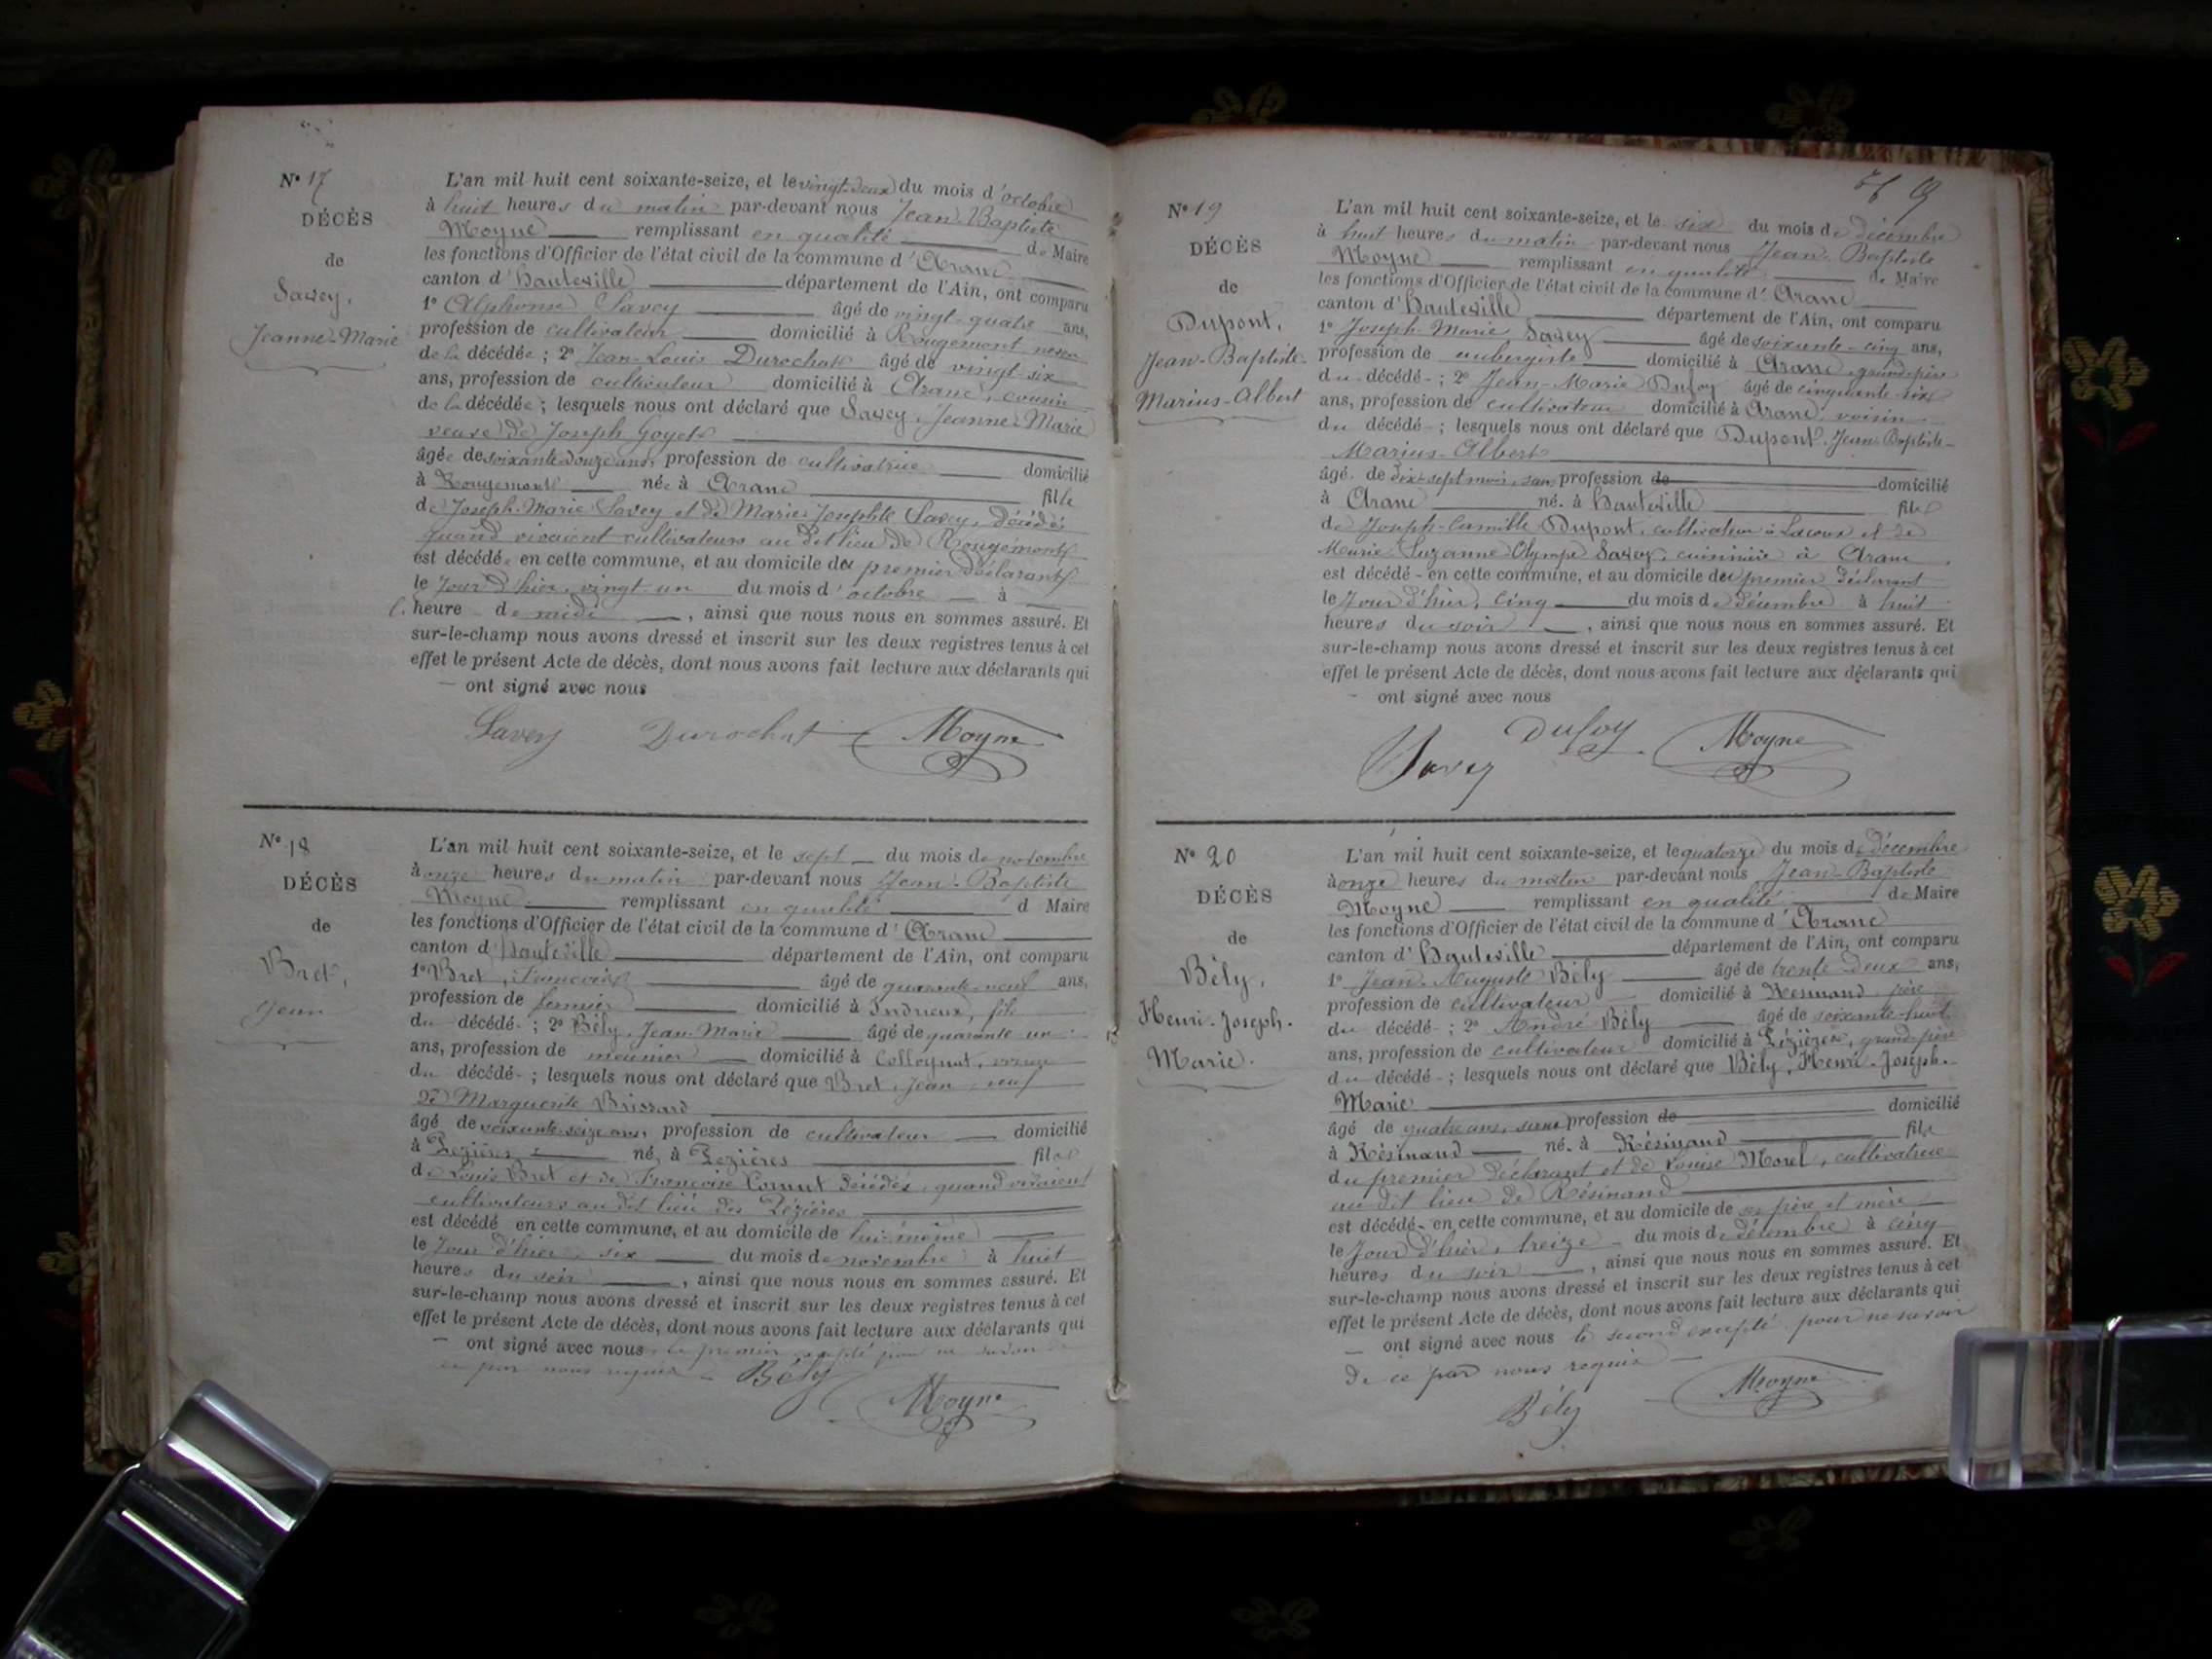 N° 17
DÉCÈS
de
Savey,
Jeanne-Marie
L'an mil huit cent soixante-seize, et le vingt-deux du mois d'octobre
à huit heures du matin par-devant nous Jean-Baptiste
Moyne remplissant en qualité de Maire
les fonctions d'Officier de l'état civil de la commune d'Aranc
canton d'Hauteville département de l'Ain, ont comparu
1° Alphonse Savey âgé de vingt-quatre ans,
profession de cultivateur domicilié à Rougemont neveu
de la décédée ; 2° Jean-Louis Durochat âgé de vingt-six
ans, profession de cultivateur domicilié à Aranc, cousin
de la décédée ; lesquels nous ont déclaré que Savey, Jeanne-Marie
veuve de Joseph Goyet
âgée de soixante-douze ans, profession de cultivatrice domicilié
à Rougemont née à Aranc fille
de Joseph-Marie Savey et de Marie-Josephte Savey, décédés
quand vivaient cultivateurs au dit lieu de Rougemont
est décédée en cette commune, et au domicile du premier déclarant
le jour d'hier, vingt-un du mois d'octobre à
l'heure de midi, ainsi que nous nous en sommes assuré. Et
sur-le-champ nous avons dressé et inscrit sur les deux registres tenus à cet
effet le présent Acte de décès, dont nous avons fait lecture aux déclarants qui
— ont signé avec nous
Savey Durochat Moyne
N° 18
DÉCÈS
de
Bret,
Jean
L'an mil huit cent soixante-seize, et le sept du mois de novembre
à onze heures du matin par-devant nous Jean-Baptiste
Moyne remplissant en qualité d Maire
les fonctions d'Officier de l'état civil de la commune d'Aranc
canton d'Hauteville département de l'Ain, ont comparu
1° Bret, François âgé de quarante-neuf ans,
profession de fermier domicilié à Indrieux, fils
du décédé ; 2° Bély, Jean-Marie âgé de quarante-un
ans, profession de meunier domicilié à
du décédé ; lesquels nous ont déclaré que Bret, Jean veuf
de Marguerite Brissard
âgé de soixante-seize ans, profession de cultivateur domicilié
à Pézières né à Pézières fils
de Louis Bret et de Françoise Cornut décédés, quand vivaient
cultivateurs au dit lieu des Pézières
est décédé en cette commune, et au domicile de lui-même
le jour d'hier, six du mois de novembre à huit
heures du soir, ainsi que nous nous en sommes assuré. Et
sur-le-champ nous avons dressé et inscrit sur les deux registres tenus à cet
effet le présent Acte de décès, dont nous avons fait lecture aux déclarants qui
— ont signé avec nous le premier excepté pour ne savoir de
ce par nous requis Bély
Moyne
N° 19
DÉCÈS
de
Dupont,
Jean-Baptiste-
Marius-Albert
L'an mil huit cent soixante-seize, et le six du mois de décembre
à huit heures du matin par-devant nous Jean-Baptiste
Moyne remplissant en qualité de Maire
les fonctions d'Officier de l'état civil de la commune d'Aranc
canton d'Hauteville département de l'Ain, ont comparu
1° Joseph-Marie Savey âgé de soixante-cinq ans,
profession de aubergiste domicilié à Aranc, grand-père
du décédé ; 2° Jean-Marie Dufoy âgé de cinquante-six
ans, profession de cultivateur domicilié à Aranc, voisin
du décédé ; lesquels nous ont déclaré que Dupont, Jean-Baptiste-
Marius-Albert
âgé de dix-sept mois, sans profession de domicilié
à Aranc né à Hauteville fils
de Joseph-Camille Dupont, cultivateur à Lacoux et de
Marie-Suzanne Olympe Savey, cuisinière à Aranc
est décédé en cette commune, et au domicile du premier déclarant
le jour d'hier, cinq du mois de décembre à huit
heures du soir, ainsi que nous nous en sommes assuré. Et
sur-le-champ nous avons dressé et inscrit sur les deux registres tenus à cet
effet le présent Acte de décès, dont nous avons fait lecture aux déclarants qui
- ont signé avec nous
Savey Dufoy Moyne
N° 20
DÉCÈS
de
Bély,
Henri-Joseph-
Marie.
L'an mil huit cent soixante-seize, et le quatorze du mois de décembre
à onze heures du matin par-devant nous Jean-Baptiste
Moyne remplissant en qualité de Maire
les fonctions d'Officier de l'état civil de la commune d'Aranc
canton d'Hauteville département de l'Ain, ont comparu
1° Jean-Auguste Bély âgé de trente-deux ans,
profession de cultivateur domicilié à Résinand père
du décédé ; 2° André Bély âgé de soixante-huit
ans, profession de cultivateur domicilié à Pézières, grand-père
du décédé ; lesquels nous ont déclaré que Bély, Henri-Joseph-
Marie
âgé de quatre ans, sans profession de domicilié
à Résinand né à Résinand fils
du premier déclarant et de Louise Morel, cultivatrice
au dit lieu de Résinand
est décédé en cette commune, et au domicile de ses père et mère
le jour d'hier, treize du mois de décembre à cinq
heures du soir, ainsi que nous nous en sommes assuré. Et
sur-le-champ nous avons dressé et inscrit sur les deux registres tenus à cet
effet le présent Acte de décès, dont nous avons fait lecture aux déclarants qui
— ont signé avec nous le second excepté pour ne savoir
de ce par nous requis
Bély Moyne